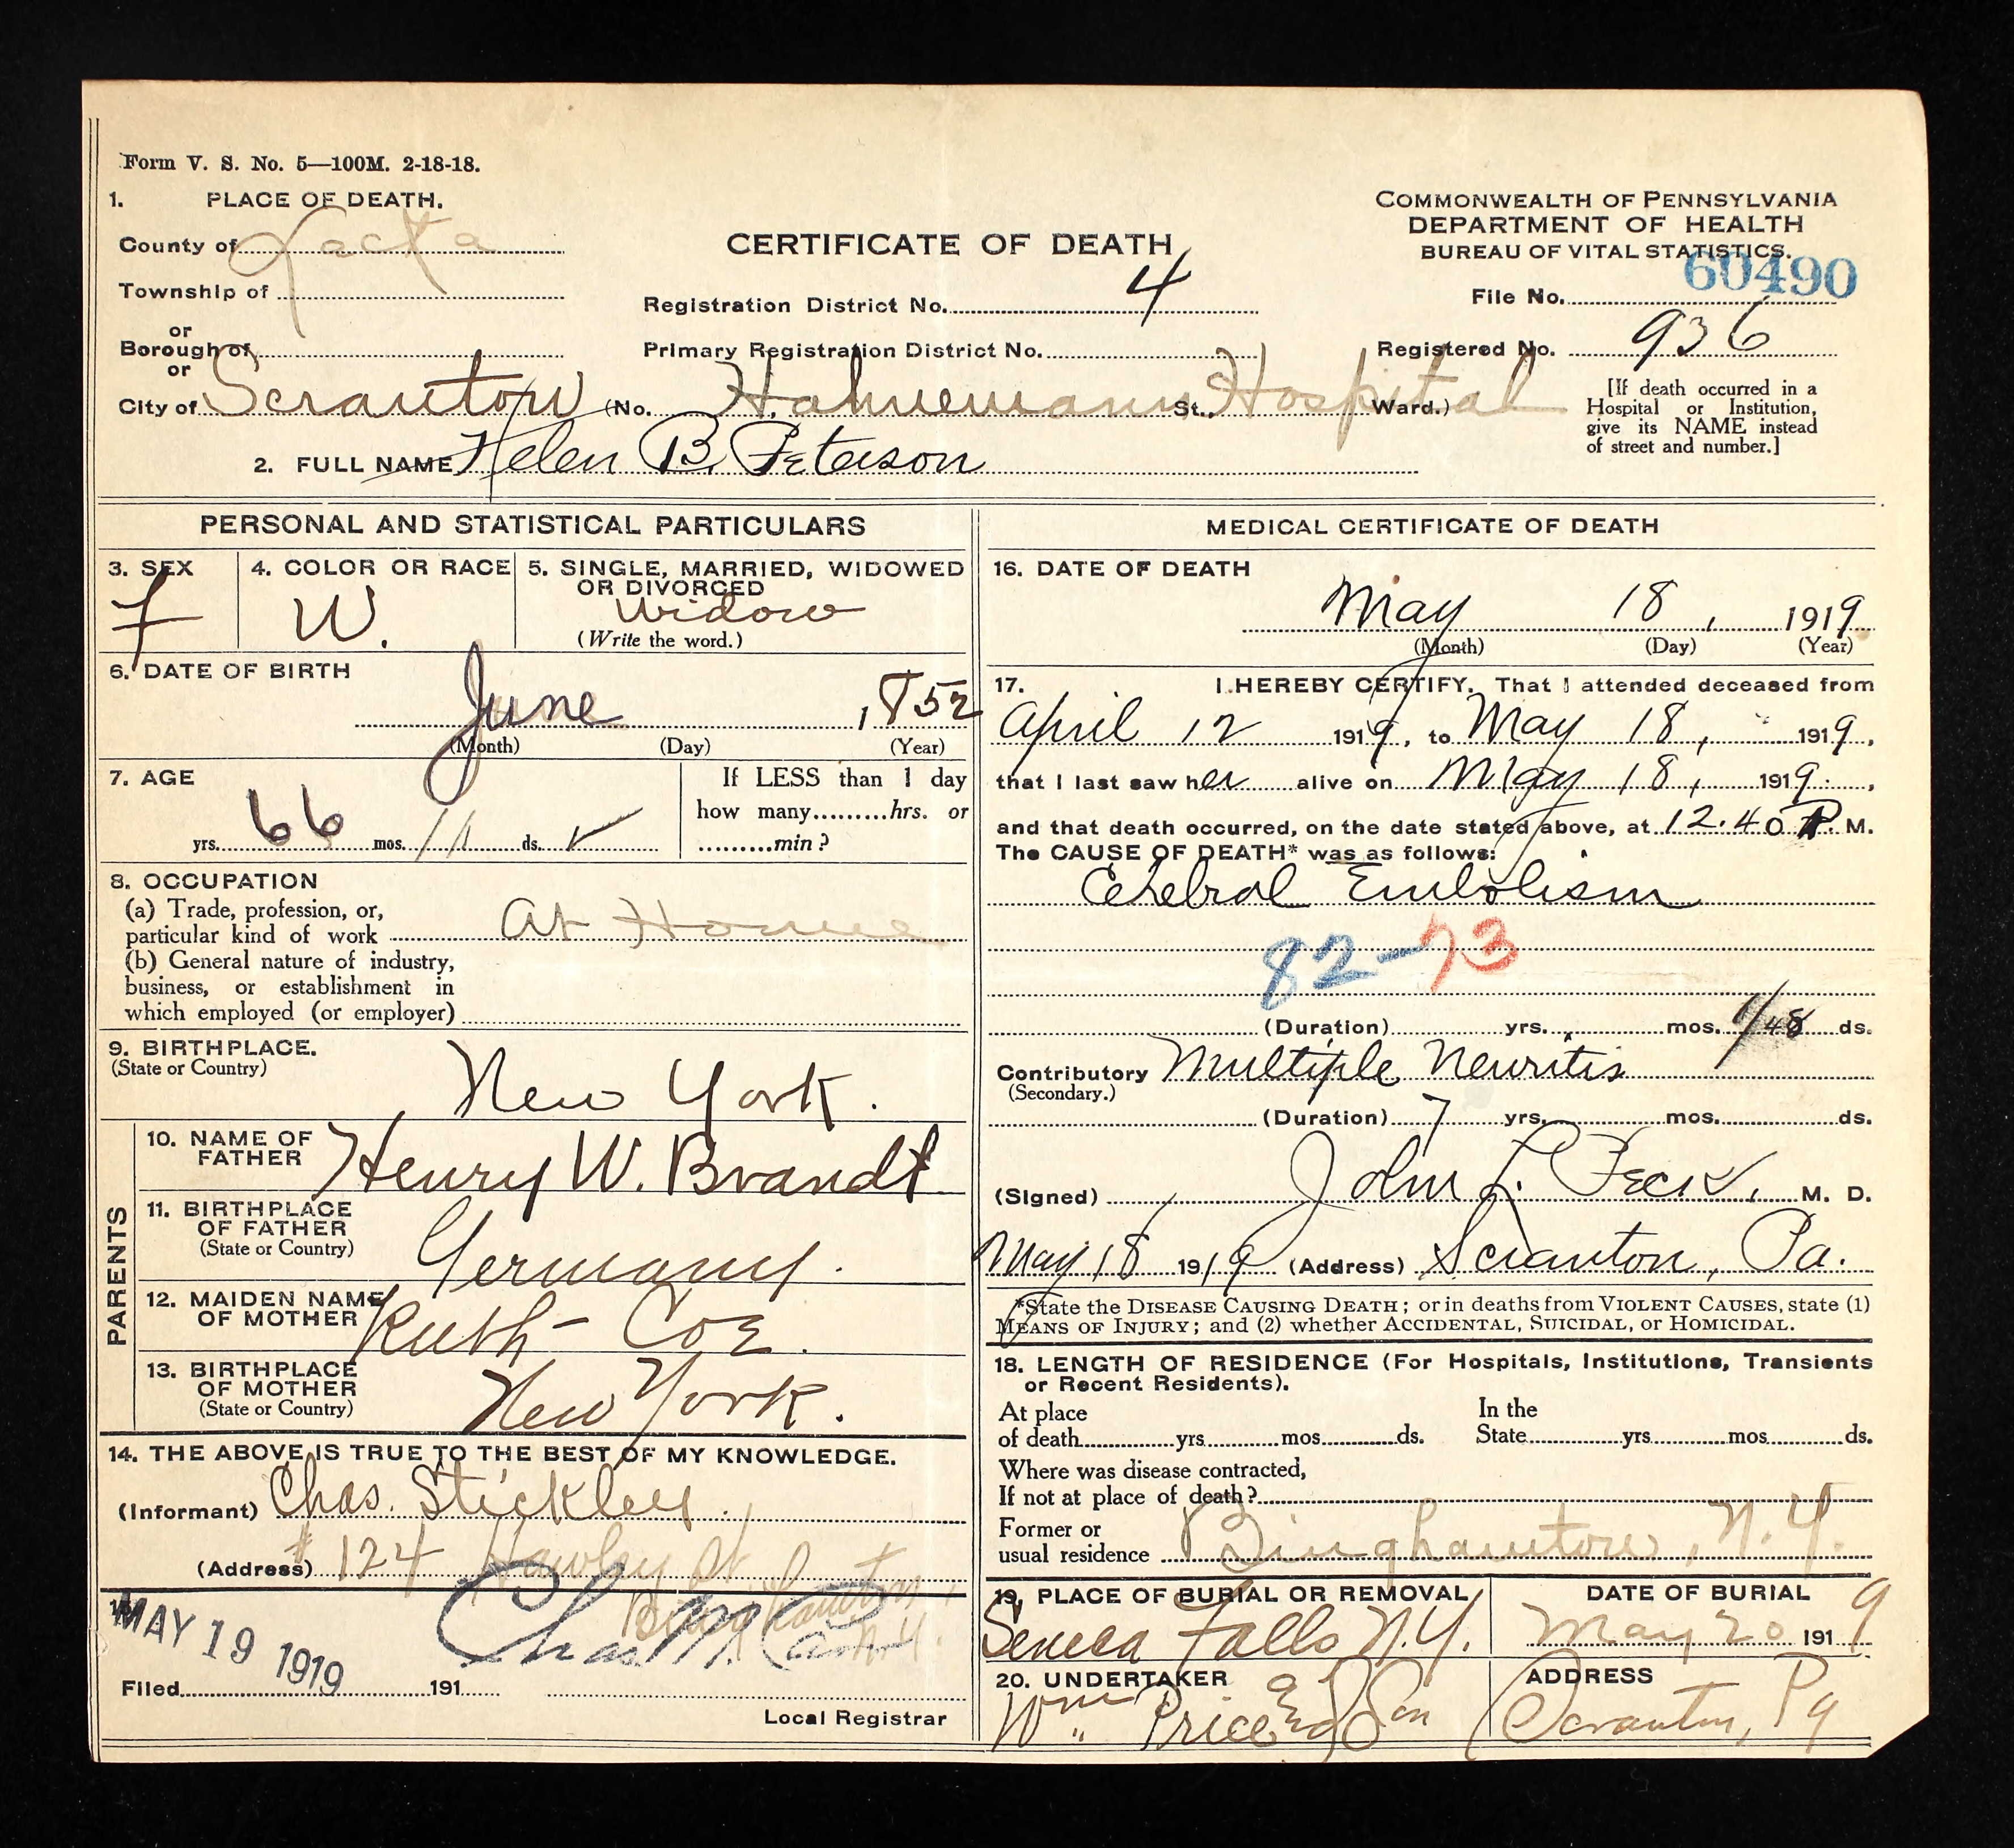 Form V. S. No. 5—100M. 2-18-18.
1. PLACE OF DEATH.
County of Lacka
Township of
or
Borough of
or
City of Scranton (No. Hahnemann St., Hospital Ward.)
CERTIFICATE OF DEATH
Registration District No. 4
Primary Registration District No.
COMMONWEALTH OF PENNSYLVANIA
DEPARTMENT OF HEALTH
BUREAU OF VITAL STATISTICS.
File No. 60490
Registered No. 936
[If death occurred in a
Hospital or Institution,
give its NAME instead
of street and number.]
2. FULL NAME Helen B. Peterson
PERSONAL AND STATISTICAL PARTICULARS
3. SEX
F
4. COLOR OR RACE
W.
5. SINGLE, MARRIED, WIDOWED
OR DIVORCED
Widow
(Write the word.)
6. DATE OF BIRTH
June , 1852
(Month) (Day) (Year)
7. AGE
66 yrs. 11 mos. ds.
If LESS than 1 day
how many.........hrs. or
.........min?
8. OCCUPATION
(a) Trade, profession, or,
particular kind of work At Home
(b) General nature of industry,
business, or establishment in
which employed (or employer)
9. BIRTHPLACE.
(State or Country)
New York.
PARENTS
10. NAME OF
FATHER Henry W. Brandt
11. BIRTHPLACE
OF FATHER
(State or Country)
Germany.
12. MAIDEN NAME
OF MOTHER Ruth - Coe.
13. BIRTHPLACE
OF MOTHER
(State or Country)
New York.
14. THE ABOVE IS TRUE TO THE BEST OF MY KNOWLEDGE.
(Informant) Chas. Stickley.
(Address) # 124 Hawley St
Binghamton, N.Y.
MAY 19 1919
Filed 191
Chas
Local Registrar
MEDICAL CERTIFICATE OF DEATH
16. DATE OF DEATH
May 18, 1919
(Month) (Day) (Year)
17. I HEREBY CERTIFY. That I attended deceased from
April 12 1919, to May 18, 1919,
that I last saw her alive on May 18, 1919,
and that death occurred, on the date stated above, at 12.40 P. M.
The CAUSE OF DEATH* was as follows:
Cerebral Embolism
82-73
(Duration) yrs. mos. 48 ds.
Contributory Multiple Neuritis
(Secondary.)
(Duration) 7 yrs. mos. ds.
(Signed) John L. Peck. M. D.
May 18 1919 (Address) Scranton, Pa.
*State the DISEASE CAUSING DEATH; or in deaths from VIOLENT CAUSES, state (1)
MEANS OF INJURY; and (2) whether ACCIDENTAL, SUICIDAL, or HOMICIDAL.
18. LENGTH OF RESIDENCE (For Hospitals, Institutions, Transients
or Recent Residents).
At place
of death yrs. mos. ds.
In the
State yrs. mos. ds.
Where was disease contracted,
If not at place of death?
Former or
usual residence Binghamton, N.Y.
19. PLACE OF BURIAL OR REMOVAL
Seneca Falls N.Y.
DATE OF BURIAL
May 20 1919
20. UNDERTAKER
Wm Price and Son
ADDRESS
Scranton, Pa